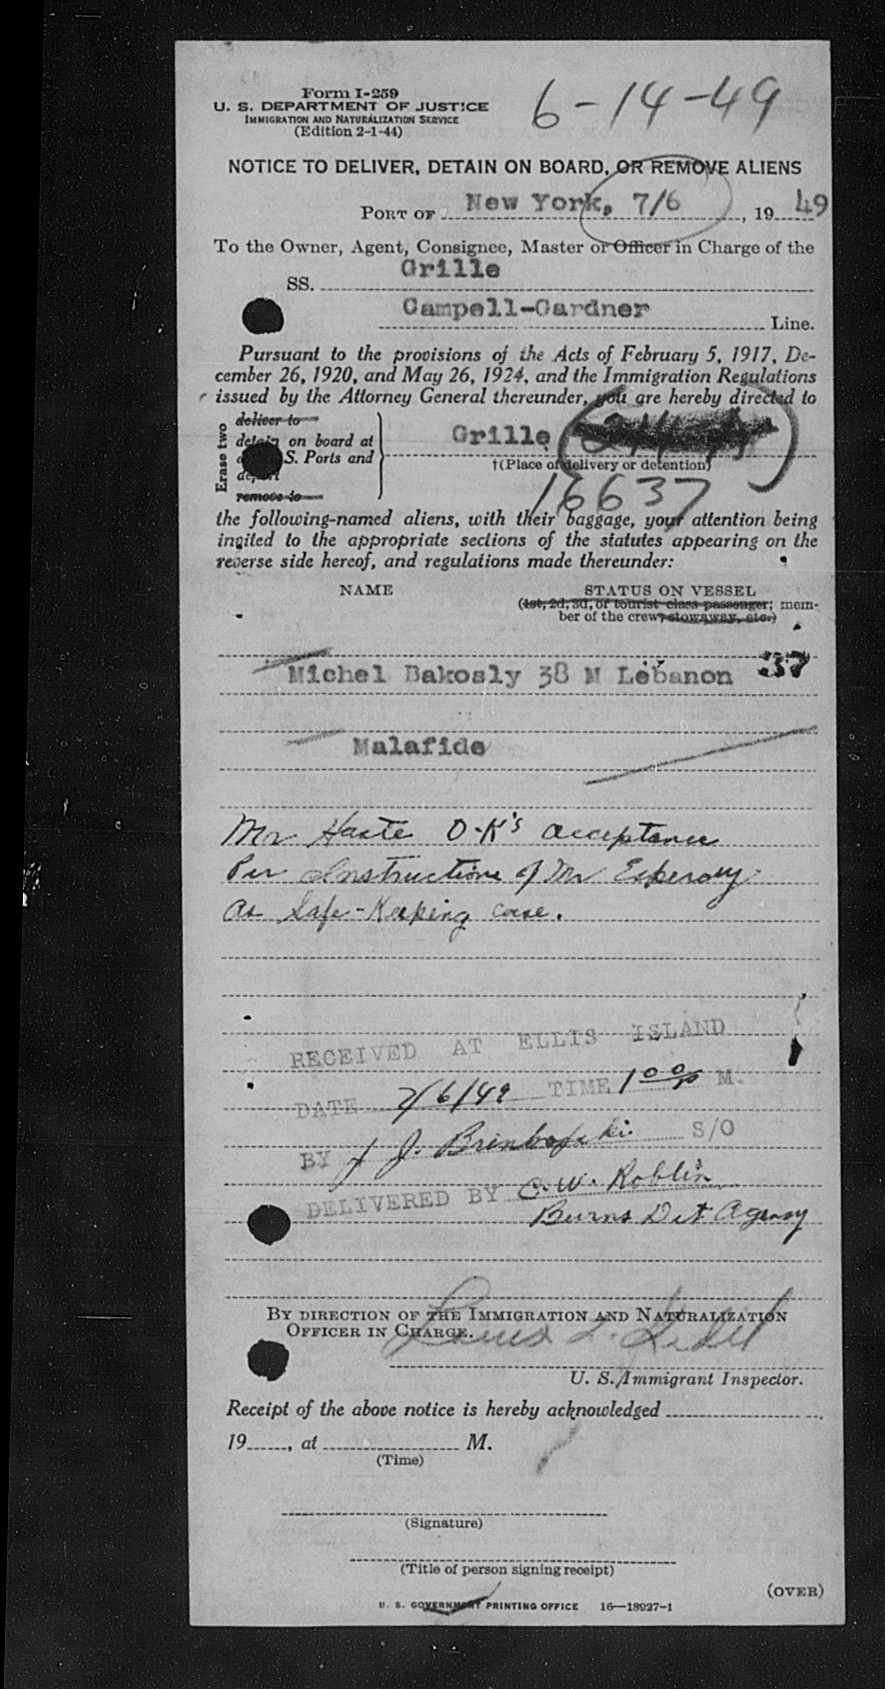 Form I-259
U. S. DEPARTMENT OF JUSTICE
IMMIGRATION AND NATURALIZATION SERVICE
(Edition 2-1-44)
6-14-49
NOTICE TO DELIVER, DETAIN ON BOARD, OR REMOVE ALIENS
PORT OF New York, 7/6, 19 49
To the Owner, Agent, Consignee, Master or Officer in Charge of the
SS. Grille
Campell-Gardner Line.
Pursuant to the provisions of the Acts of February 5, 1917, De-
cember 26, 1920, and May 26, 1924, and the Immigration Regulations
issued by the Attorney General thereunder, you are hereby directed to
Erase two
deliver to
detain on board at Grille
S. Ports and
†(Place of delivery or detention)
remove to
16637
the following-named aliens, with their baggage, your attention being
invited to the appropriate sections of the statutes appearing on the
reverse side hereof, and regulations made thereunder:
NAME STATUS ON VESSEL
(1st, 2d, 3d, or tourist class passenger; mem-
ber of the crew, stowaway, etc.)
Michel Bakosly 38 M Lebanon 37
Malafide
Mr Haste O-K's acceptance
Per Instructions of Mr Esperdy
as Safe-Keeping case.
RECEIVED AT ELLIS ISLAND
DATE 7/6/49 TIME 1 00 P M.
BY J. S/O
DELIVERED BY C. W. Roblin
Burns Det Agency
BY DIRECTION OF THE IMMIGRATION AND NATURALIZATION
OFFICER IN CHARGE.
Louis
U. S. Immigrant Inspector.
Receipt of the above notice is hereby acknowledged
19, at M.
(Time)
(Signature)
(Title of person signing receipt)
(OVER)
U. S. GOVERNMENT PRINTING OFFICE 16—18927-1